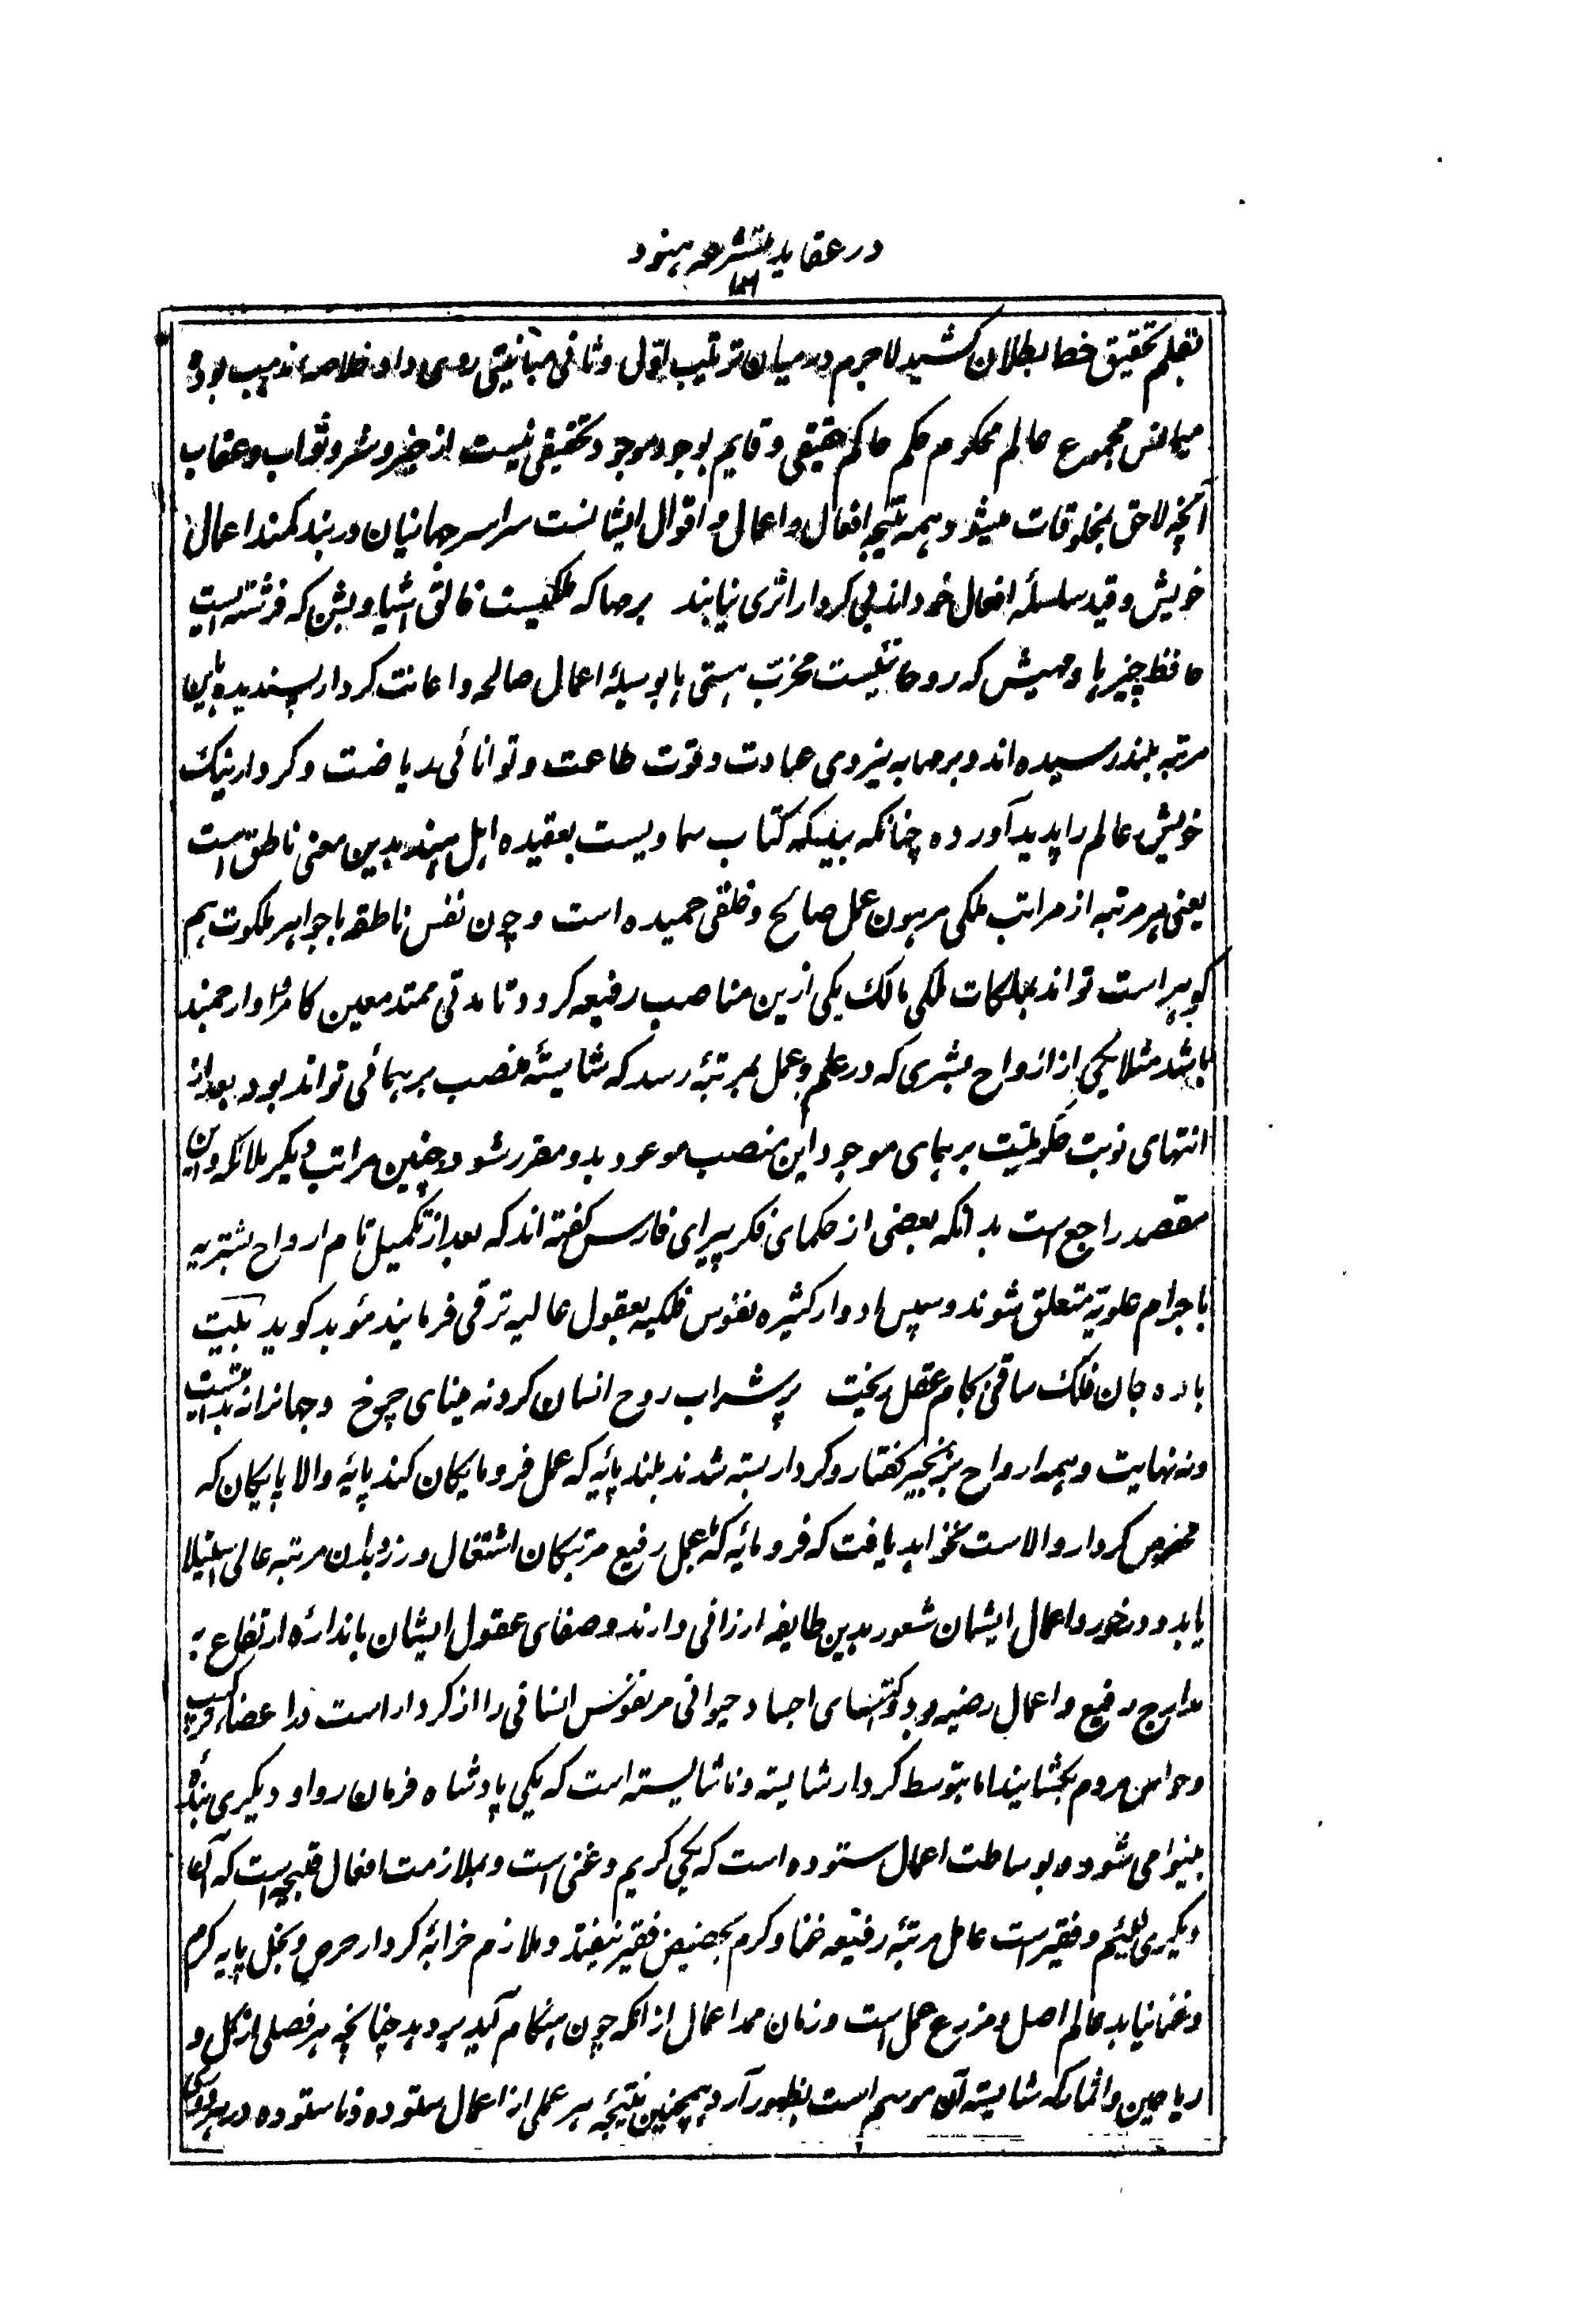 در عقاید متشرعه هنود
بقلم تحقیق خط بطلان کشید لاجرم در میان ترتیب اول و ثانی مباینتی روی داد خلاصه مذهب بوده
میمانس مجموع عالم محکوم حکم حاکم حقیقی و قایم بوجود موجود تحقیقی نیست از خیر و شر و ثواب و عقاب
آنچه لاحق بمخلوقات میشود همه نتیجه افعال و اعمال و اقوال ایشانست سراسر جهانیان در بند کمند اعمال
خویش و قید سلسلۀ افعال خود اند بی کردار اثری نیابند برهما که ملکیست خالق اشیا و بشن که فرشته ایست
حافظ چیزها و مهیش که روحانیست مخرب هستی ها بوسیلۀ اعمال صالحه و اعانت کردار پسندیده باین
مرتبه بلند رسیده اند و برهما به نیروی عبادت و قوت طاعت و توانائی ریاضت و کردار نیک
خویش عالم را پدید آورده چنانکه بید که کتاب سماویست بعقیده اهل هند بدین معنی ناطق است
یعنی هر مرتبه از مراتب ملکی مرهون عمل صالح و خلقی حمیده است و چون نفس ناطقه با جواهر ملکوت هم
کوهر است تواند بملکات ملکی مالک یکی ازین مناصب رفیعه کردد و تا مدتی ممتد معین کامروا و ارجمند
باشد مثلا یکی از ارواح بشری که در علم و عمل بمرتبۀ رسد که شایستۀ منصب برهمائی تواند بود بعد از
انتهای نوبت حکومت برهمای موجود این منصب موعود بدو مقرر شود و چنین مراتب دیکر ملائکه و این
مقصد راجع است بدانکه بعضی از حکمای فکر پیرای فارس کفته اند که بعد از تکمیل تام ارواح بشریه
باجرام علویه متعلق شوند و سپس ادوار کثیره نفوس فلکیه بعقول عالیه ترقی فرمایند مؤبد کوید بیت
باده جان فلک ساقی بکام عقل ریخت پر شراب روح انسان کردنه مینای چرخ و جهانرا نه بدایتست
و نه نهایت و همه ارواح بزنجیر کفتار و کردار بسته شدند بلند پایه که عمل فرومایکان کند پایۀ والا پایکان که
مخصوص کردار والاست نخواهد یافت که فرومایه که بعمل رفیع مرتبکان اشتغال ورزد بدان مرتبه عالی استیلا
یابد و در خور اعمال ایشان شعور بدین طایفه ارزانی دارند و صفای عقول ایشان باندازۀ ارتفاع به
مدارج رفیع و اعمال رضیه بود اجساد حیوانی مر نفوس انسانی را از کردار است
و حواس مردم بخشایند اما بتوسط کردار شایسته و ناشایسته است که یکی پادشاه فرمان روا و دیکری بندۀ
بینوا می شود و بوساطت اعمال ستوده است که یکی کریم و غنی است و بملازمت افعال قبیحه است که
دیکری لئیم و فقیر است عامل مرتبۀ رفیعه غنا و کرم بحضیض فقر نیفتد و ملازم خرابۀ کردار حرص و بخل پایه کرم
و غنا نیابد عالم اصل و مزرع عمل است و زمان ممد اعمال از انکه چون هنکام آید بر دهد چنانچه هر فصلی از کل و
ریاحین و اثمار که شایسته آن موسم است بظهور آرد همچنین نتیجۀ هر عملی از اعمال ستوده و ناستوده در هر